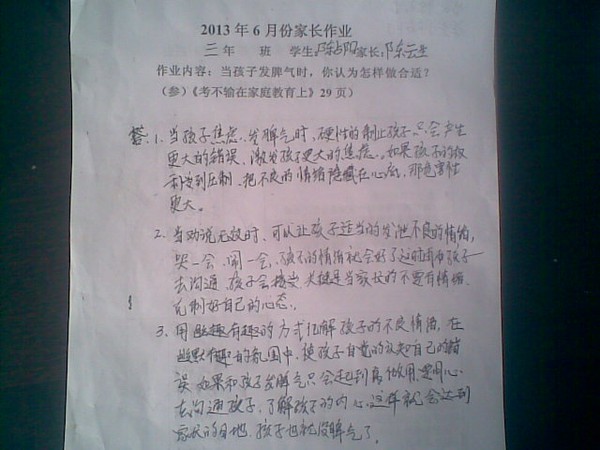 2013年6月份家长作业
三年 班 学生 陈占阳 家长:陈云生
作业内容：当孩子发脾气时，你认为怎样做合适？
（参）《考不输在家庭教育上》29页）
答:1.当孩子焦虑、发脾气时、硬性的制止孩子只会产生
更大的错误、激发孩子更大的焦虑。如果孩子的权
利受到压制、把不良的情绪隐藏在心底，那危害性
更大。
2.当劝说无效时、可以让孩子适当的发泄不良的情绪,
哭一会、闹一会、孩子的情绪就会好了这时再和孩子
去沟通 孩子会接受 关键是当家长的不要有情绪、
克制好自己的心态。
3.用幽默有趣的方式化解孩子的不良情绪，在
幽默有趣的氛围中、使孩子自觉的认知自己的错
误 如果和孩子发脾气只会起到 作用 要用心
去沟通孩子、了解孩子的内心、这样就会达到
家长的目地、孩子也就没脾气了。